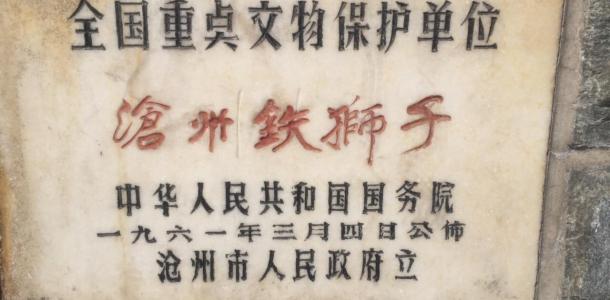 全国重点文物保护单位
滄州鉄獅子
中华人民共和国国务院
一九六一年三月四日公佈
沧州市人民政府立